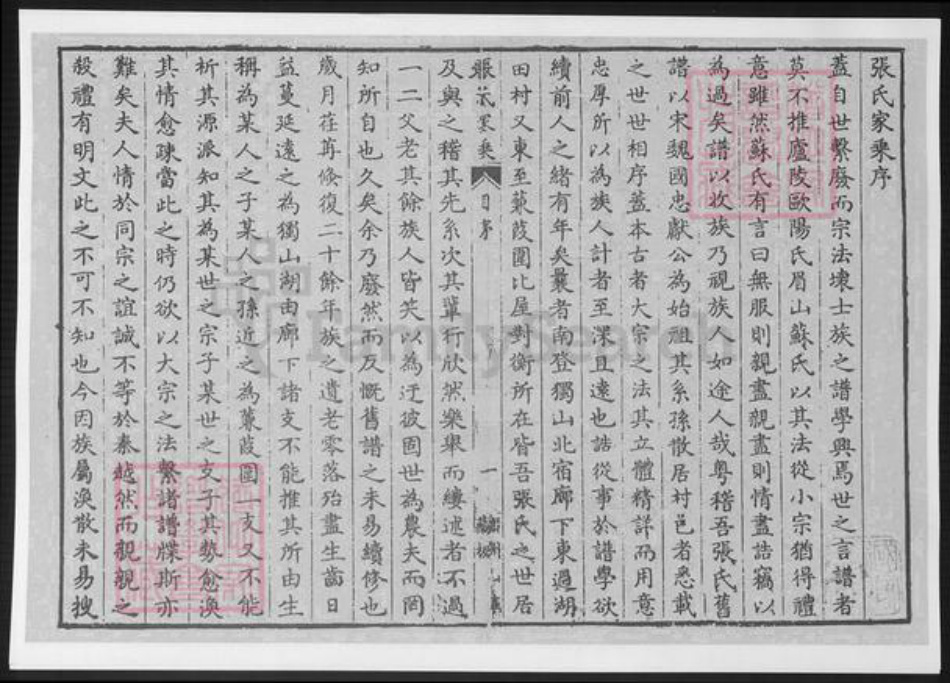 張氏家乘序
蓋自世繫廢而宗法壞士族之譜學興焉世之言譜者
莫不推廬陵歐陽氏眉山蘇氏以其法從小宗猶得禮
意雖然蘇氏有言曰無服則親盡親盡則情盡誥竊以
為過矣譜以收族乃視族人如途人哉粵稽吾張氏舊
譜以宋魏國忠獻公為始祖其系孫散居村邑者悉載
之世世相序蓋本古者大宗之法其立體精詳而用意
忠厚所以為族人計者至深且遠也誥從事於譜學欲
續前人之緒有年矣曩者南登獨山北宿廊下東過湖
田村又東至蒹葭圍比屋對衡所在皆吾張氏之世居
張氏家乘
一
及與之稽其先系次其輩行欣然樂舉而縷述者不過
一二父老其餘族人皆笑以為迂彼固世為農夫而罔
知所自也久矣余乃廢然而反慨舊譜之未易續修也
歲月荏苒倏復二十餘年族之遺老零落殆盡生齒日
益蔓延遠之為獨山湖由廊下諸支不能推其所由生
稱為某人之子某人之孫近之為蒹葭圍一支又不能
析其源派知其為某世之宗子某世之支子其勢愈渙
其情愈疎當此之時仍欲以大宗之法繫諸譜牒斯亦
難矣夫人情於同宗之誼誠不等於秦越然而親親之
殺禮有明文此之不可不知也今因族屬渙散未易搜
FamilySearch